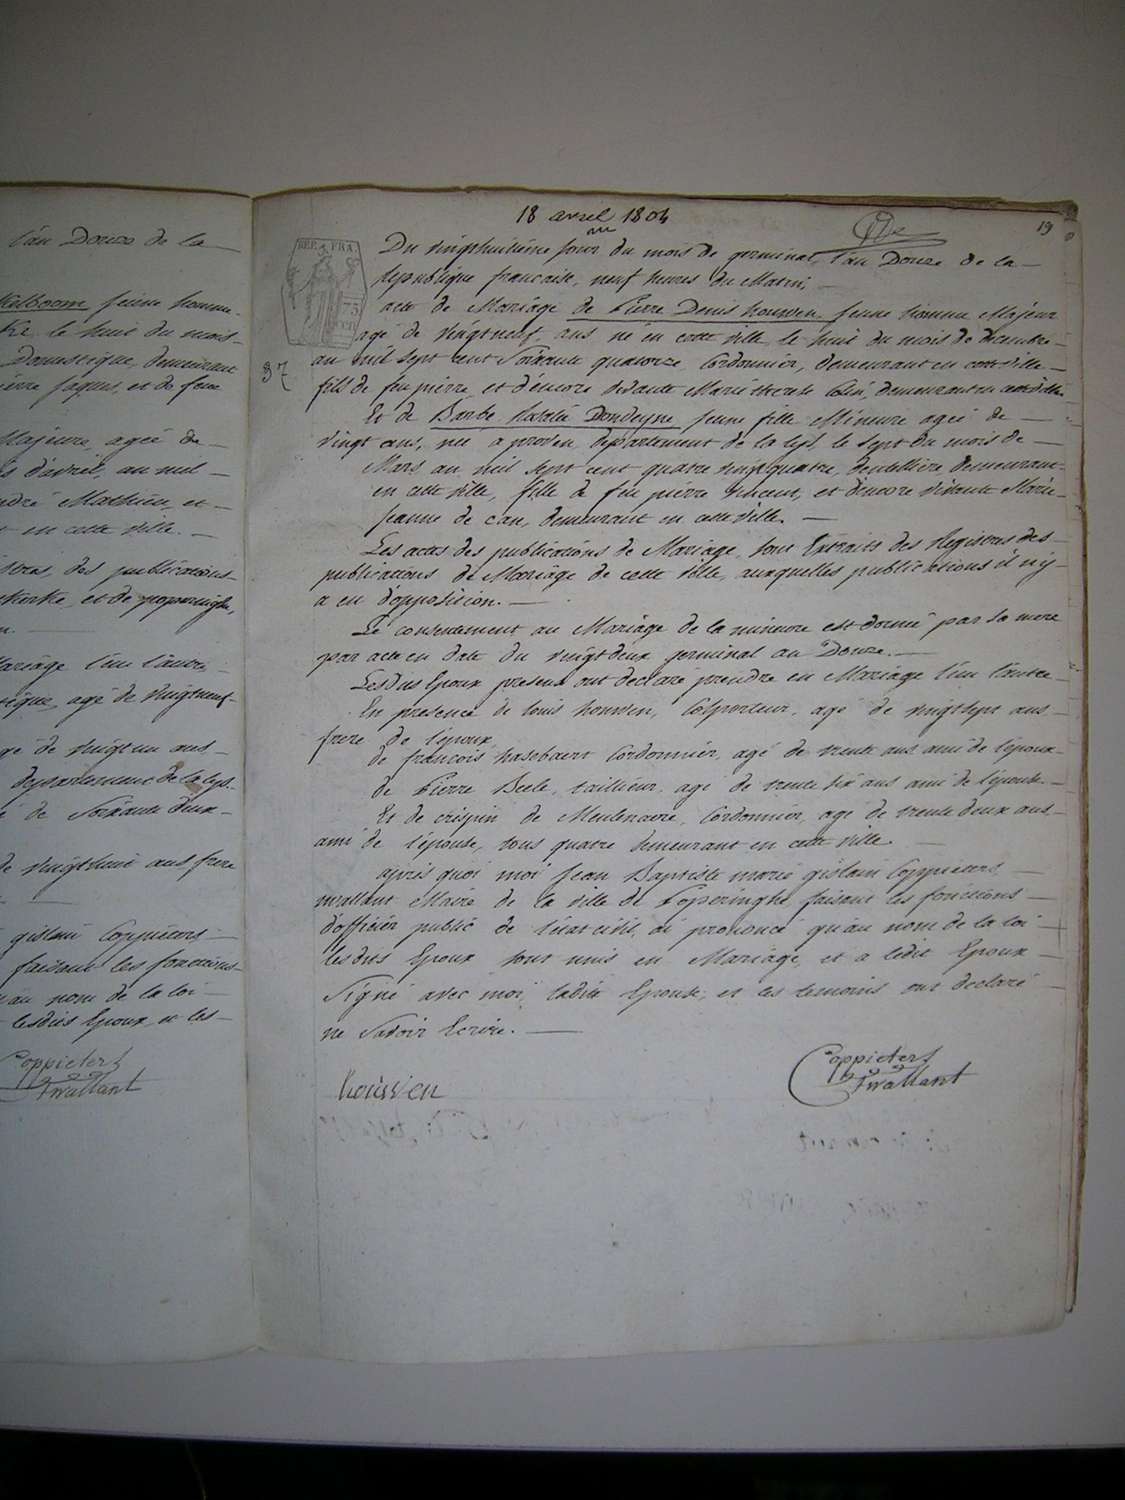 l'an Douze de la
Kulboom jeune homme
le huit du mois
Domestique, demeurant
pierre jaques, et de feue
Majeure, agée de
d'avril, au mil
André Mathieu, et
en cette ville.
des publications
et de poperinghe,
Mariage l'un l'autre
agé de vingtneuf
de vingtun ans
departement de la lys.
de Soixante deux
de vingthuit ans frere
gislain Coppieters
faisant les fonctions
au nom de la loi
lesdits Epoux, et les
Coppieters
Twallant
18 avril 1804
19
REP. FRA.
75
37
Du vingthuitième jour du mois de germinal, l'an Douze de la
republique française, neuf heures du Matin,
acte de Mariage de Pierre Denis houwen jeune homme Majeur
agé de vingtneuf ans né en cette ville le huit du mois de decembre
an mil sept cent Soixante quatorze, Cordonnier, demeurant en cette ville
fils de feu pierre, et d'encore vivante Marie therese Colin, demeurant en cette ville
Et de Barbe Natalie Dondeyne jeune fille Mineure agée de
vingt ans, née a proven departement de la lys le Sept du mois de
Mars an mil Sept cent quatre vingt quatre, dentellière demeurant
en cette ville, fille de feu pierre vincent, et d'encore vivante Marie
jeanne de cae, demeurant en cette ville.
Les actes des publications de Mariage, sont Extraits des Registres des
publications de Mariage de cette ville, auxquelles publications il n'y
a eu d'opposition.
Le consentement au Mariage de la mineure est donné par sa mere
par acte en date du vingt deux germinal an Douze.
Lesdits Epoux presens ont declaré prendre en Mariage l'un l'autre
En presence de louis houwen, Colporteur, agé de vingtsept ans
frere de l'époux
de françois hasebaert Cordonnier, agé de trente ans ami de l'époux
de Pierre Beele, tailleur, agé de trente six ans ami de l'épouse
Et de crispin de Meulenaere, Cordonnier, agé de trente deux ans
ami de l'épouse, tous quatre demeurant en cette ville.
après quoi moi Jean Baptiste marie gislain Coppieters
twallant Maire de la ville de Poperinghe faisant les fonctions
d'officier public de l'état civil, ai prononcé qu'au nom de la loi
lesdits Epoux sont unis en Mariage, et a ledit Epoux
Signé avec moi, ladite Epouse, et les temoins ont declaré
ne savoir Ecrire.
houwen
Coppieters
Twallant